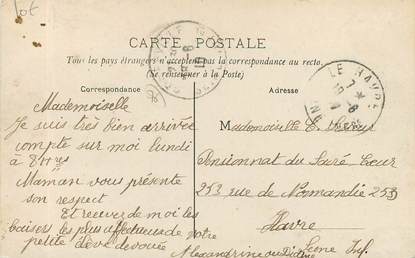 lot
CARTE POSTALE
Tous les pays étrangers n'acceptent pas la correspondance au recto.
(Se renseigner à la Poste)
Correspondance
Mademoiselle
Je suis très bien arrivée
compte sur moi lundi
à 8 hres
Maman vous présente
son respect
Et recevez de moi les
baisers les plus affectueux de votre
petite élève dévouée
Alexandrine
Adresse
LE HAVRE
Mademoiselle
Pensionnat du Sacré-Cœur
253 rue de Normandie 253
Havre
Seine Inf.